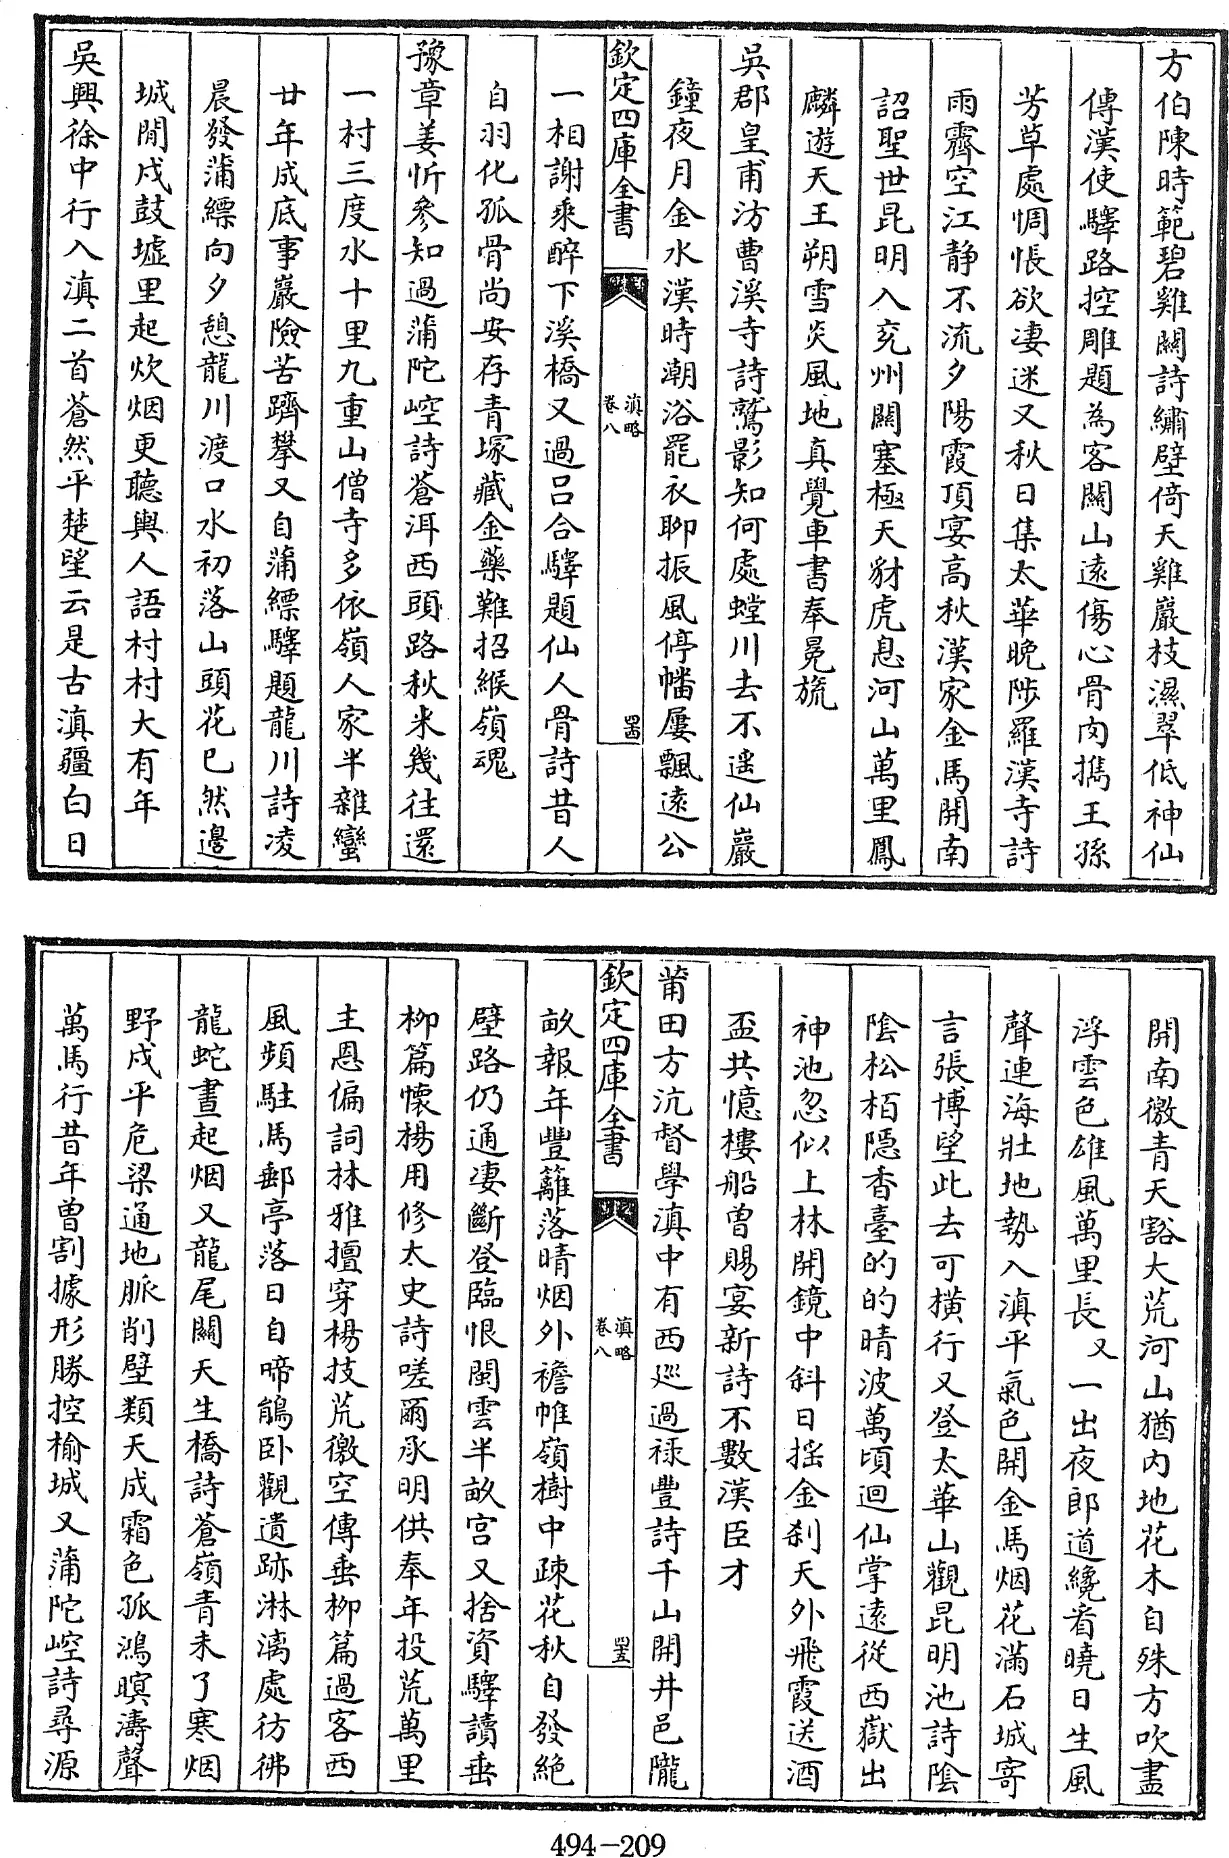 方伯陳時範碧雞關詩繡壁倚天雞巖枝濕翠低神仙
傳漢使驛路控雕題為客關山遠傷心骨肉擕王孫
芳草處惆悵欲凄迷又秋日集太華晚陟羅漢寺詩
雨霽空江静不流夕陽霞頂宴高秋漢家金馬開南
詔聖世昆明入兖州關塞極天豺虎息河山萬里鳳
麟遊天王朔雪炎風地真覺車書奉冕旒
吳郡皇甫汸曹溪寺詩鷲影知何處螳川去不遥仙巖
鐘夜月金水漢時潮浴罷衣聊振風停幡屢飄遠公
欽定四庫全書
滇略
卷八
四十四
一相謝乘醉下溪橋又過吕合驛題仙人骨詩昔人
自羽化孤骨尚安存青塚藏金藥難招緱嶺魂
豫章姜忻參知過蒲陀崆詩蒼洱西頭路秋來幾往還
一村三度水十里九重山僧寺多依嶺人家半雜蠻
廿年成底事巖險苦躋攀又自蒲縹驛題龍川詩凌
晨發蒲縹向夕憩龍川渡口水初落山頭花已然邊
城閒戍鼓墟里起炊烟更聽輿人語村村大有年
吳興徐中行入滇二首蒼然平楚望云是古滇疆白日
開南徼青天豁大荒河山猶内地花木自殊方吹盡
浮雲色雄風萬里長又一出夜郎道纔看曉日生風
聲連海壯地勢入滇平氣色開金馬烟花滿石城寄
言張博望此去可横行又登太華山觀昆明池詩陰
陰松栢隱香臺的的晴波萬頃迴仙掌遠從西嶽出
神池忽似上林開鏡中斜日搖金刹天外飛霞送酒
盃共憶樓船曾賜宴新詩不數漢臣才
莆田方沆督學滇中有西廵過祿豐詩千山開井邑隴
欽定四庫全書
滇略
卷八
四十五
畝報年豐籬落晴烟外襜帷嶺樹中疎花秋自發絶
壁路仍通凄斷登臨恨閩雲半畝宫又捨資驛讀垂
柳篇懷楊用修太史詩嗟爾承明供奉年投荒萬里
主恩偏詞林雅擅穿楊技荒徼空傳垂柳篇過客西
風頻駐馬郵亭落日自啼鵑卧觀遺跡淋漓處彷彿
龍蛇晝起烟又龍尾關天生橋詩蒼嶺青未了寒烟
野戍平危梁通地脈削壁類天成霜色孤鴻暝濤聲
萬馬行昔年曾割據形勝控榆城又蒲陀崆詩尋源
494-209